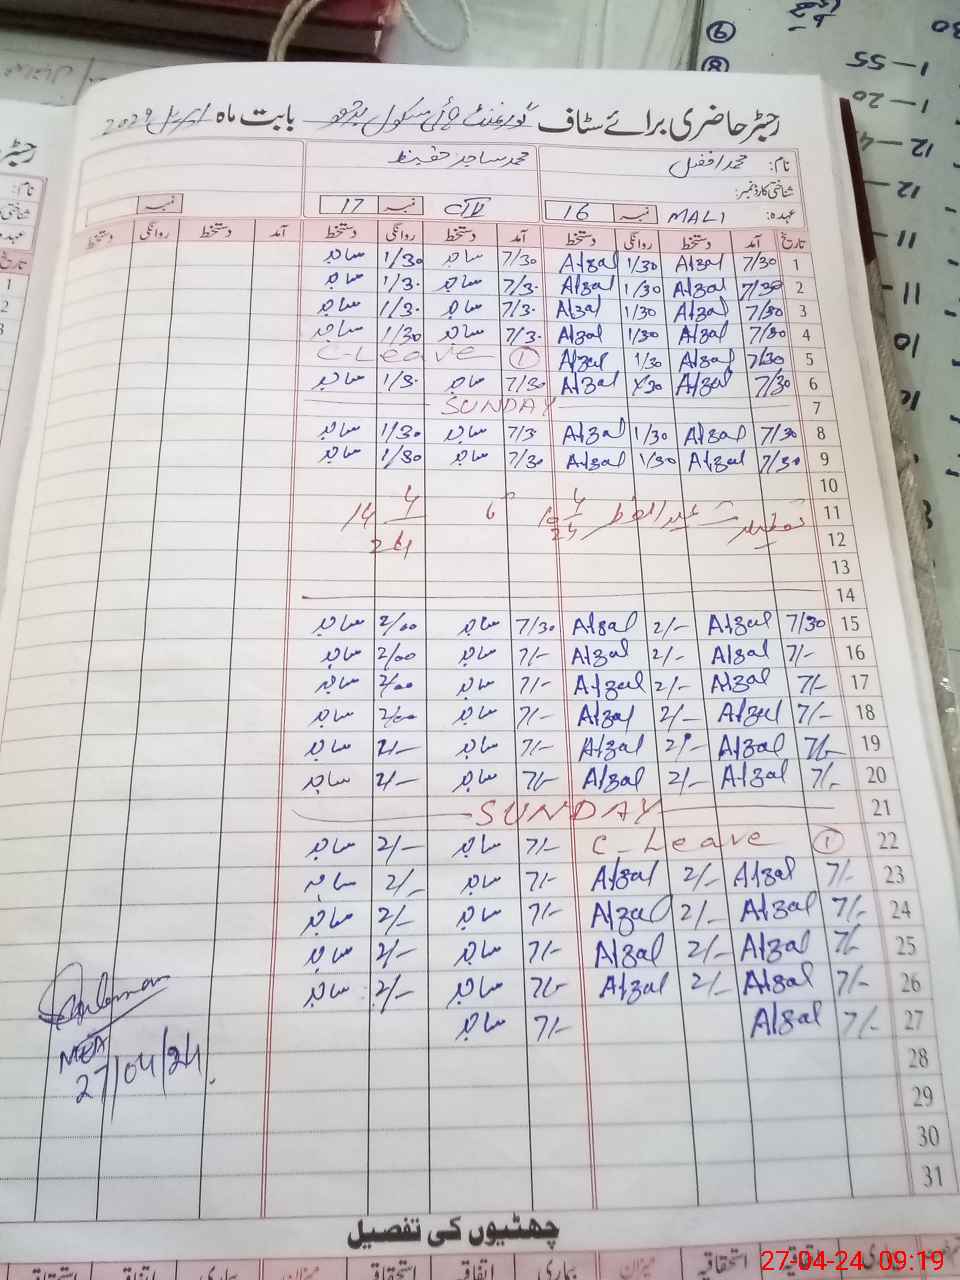 رجسٹر حاضری برائے سٹاف گورنمنٹ ہائی سکول بابت ماہ اپریل 2024
نام: محمد افضل محمد ساجد حفیظ
شناختی کارڈ نمبر:
عہدہ: MALI نمبر 16 CIV نمبر 17 نمبر
تاریخ آمد دستخط روانگی دستخط آمد دستخط روانگی دستخط آمد دستخط روانگی دستخط
1 7/30 Afzal 1/30 Afzal 7/30 ساجد 1/30 ساجد
2 7/30 Afzal 1/30 Afzal 7/3. ساجد 1/3. ساجد
3 7/30 Afzal 1/30 Afzal 7/3. ساجد 1/3. ساجد
4 7/30 Afzal 1/30 Afzal 7/3. ساجد 1/30 ساجد
5 7/30 Afzal 1/30 Afzal ① C-Leave
6 7/30 Afzal 1/30 Afzal 7/30 ساجد 1/3. ساجد
7 SUNDAY
8 7/30 Afzal 1/30 Afzal 7/3 ساجد 1/30 ساجد
9 7/30 Afzal 1/30 Afzal 7/30 ساجد 1/30 ساجد
10
11 تعطیلات عید الفطر 10 4/24 تا 14 4/24
12
13
14
15 7/30 Afzal 2/- Afzal 7/30 ساجد 2/00 ساجد
16 7/- Afzal 2/- Afzal 7/- ساجد 2/00 ساجد
17 7/- Afzal 2/- Afzal 7/- ساجد 2/00 ساجد
18 7/- Afzal 2/- Afzal 7/- ساجد 2/00 ساجد
19 7/- Afzal 2/- Afzal 7/- ساجد 2/- ساجد
20 7/- Afzal 2/- Afzal 7/- ساجد 2/- ساجد
21 SUNDAY
22 ① C-Leave 7/- ساجد 2/- ساجد
23 7/- Afzal 2/- Afzal 7/- ساجد 2/- ساجد
24 7/- Afzal 2/- Afzal 7/- ساجد 2/- ساجد
25 7/- Afzal 2/- Afzal 7/- ساجد 2/- ساجد
26 7/- Afzal 2/- Afzal 7/- ساجد 2/- ساجد
27 7/- Afzal 7/- ساجد
28
29
30
31
MEA
27/04/24
چھٹیوں کی تفصیل
استحقاقیہ میزان بیماری اتفاقیہ استحقاقیہ میزان بیماری اتفاقیہ استحقاقیہ
27-04-24 09:19